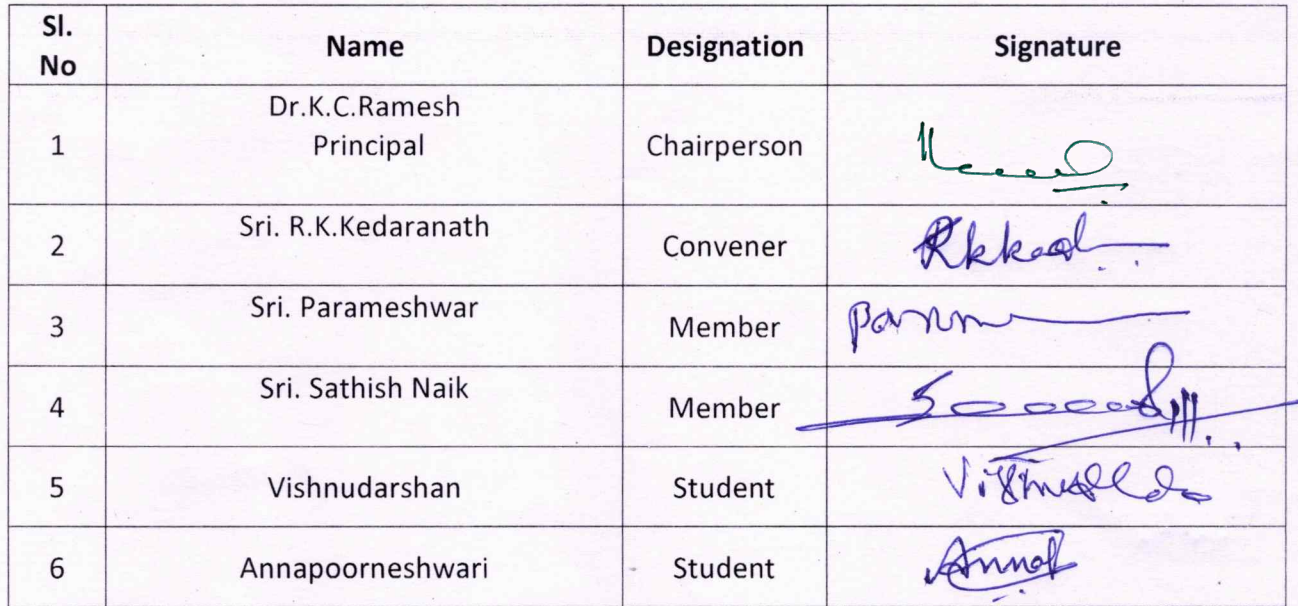 Sl. No Name Designation Signature
Dr.K.C.Ramesh
1 Principal Chairperson
2 Sri. R.K.Kedaranath Convener
3 Sri. Parameshwar Member
4 Sri. Sathish Naik Member
5 Vishnudarshan Student
6 Annapoorneshwari Student